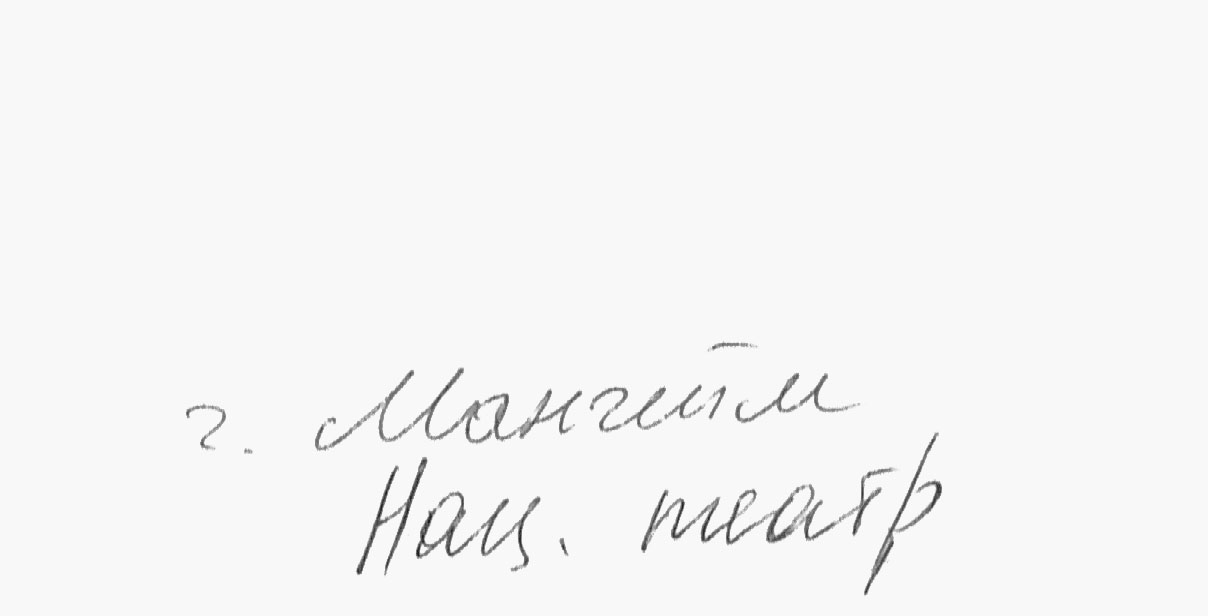 г. Мангейм
Нац. театр